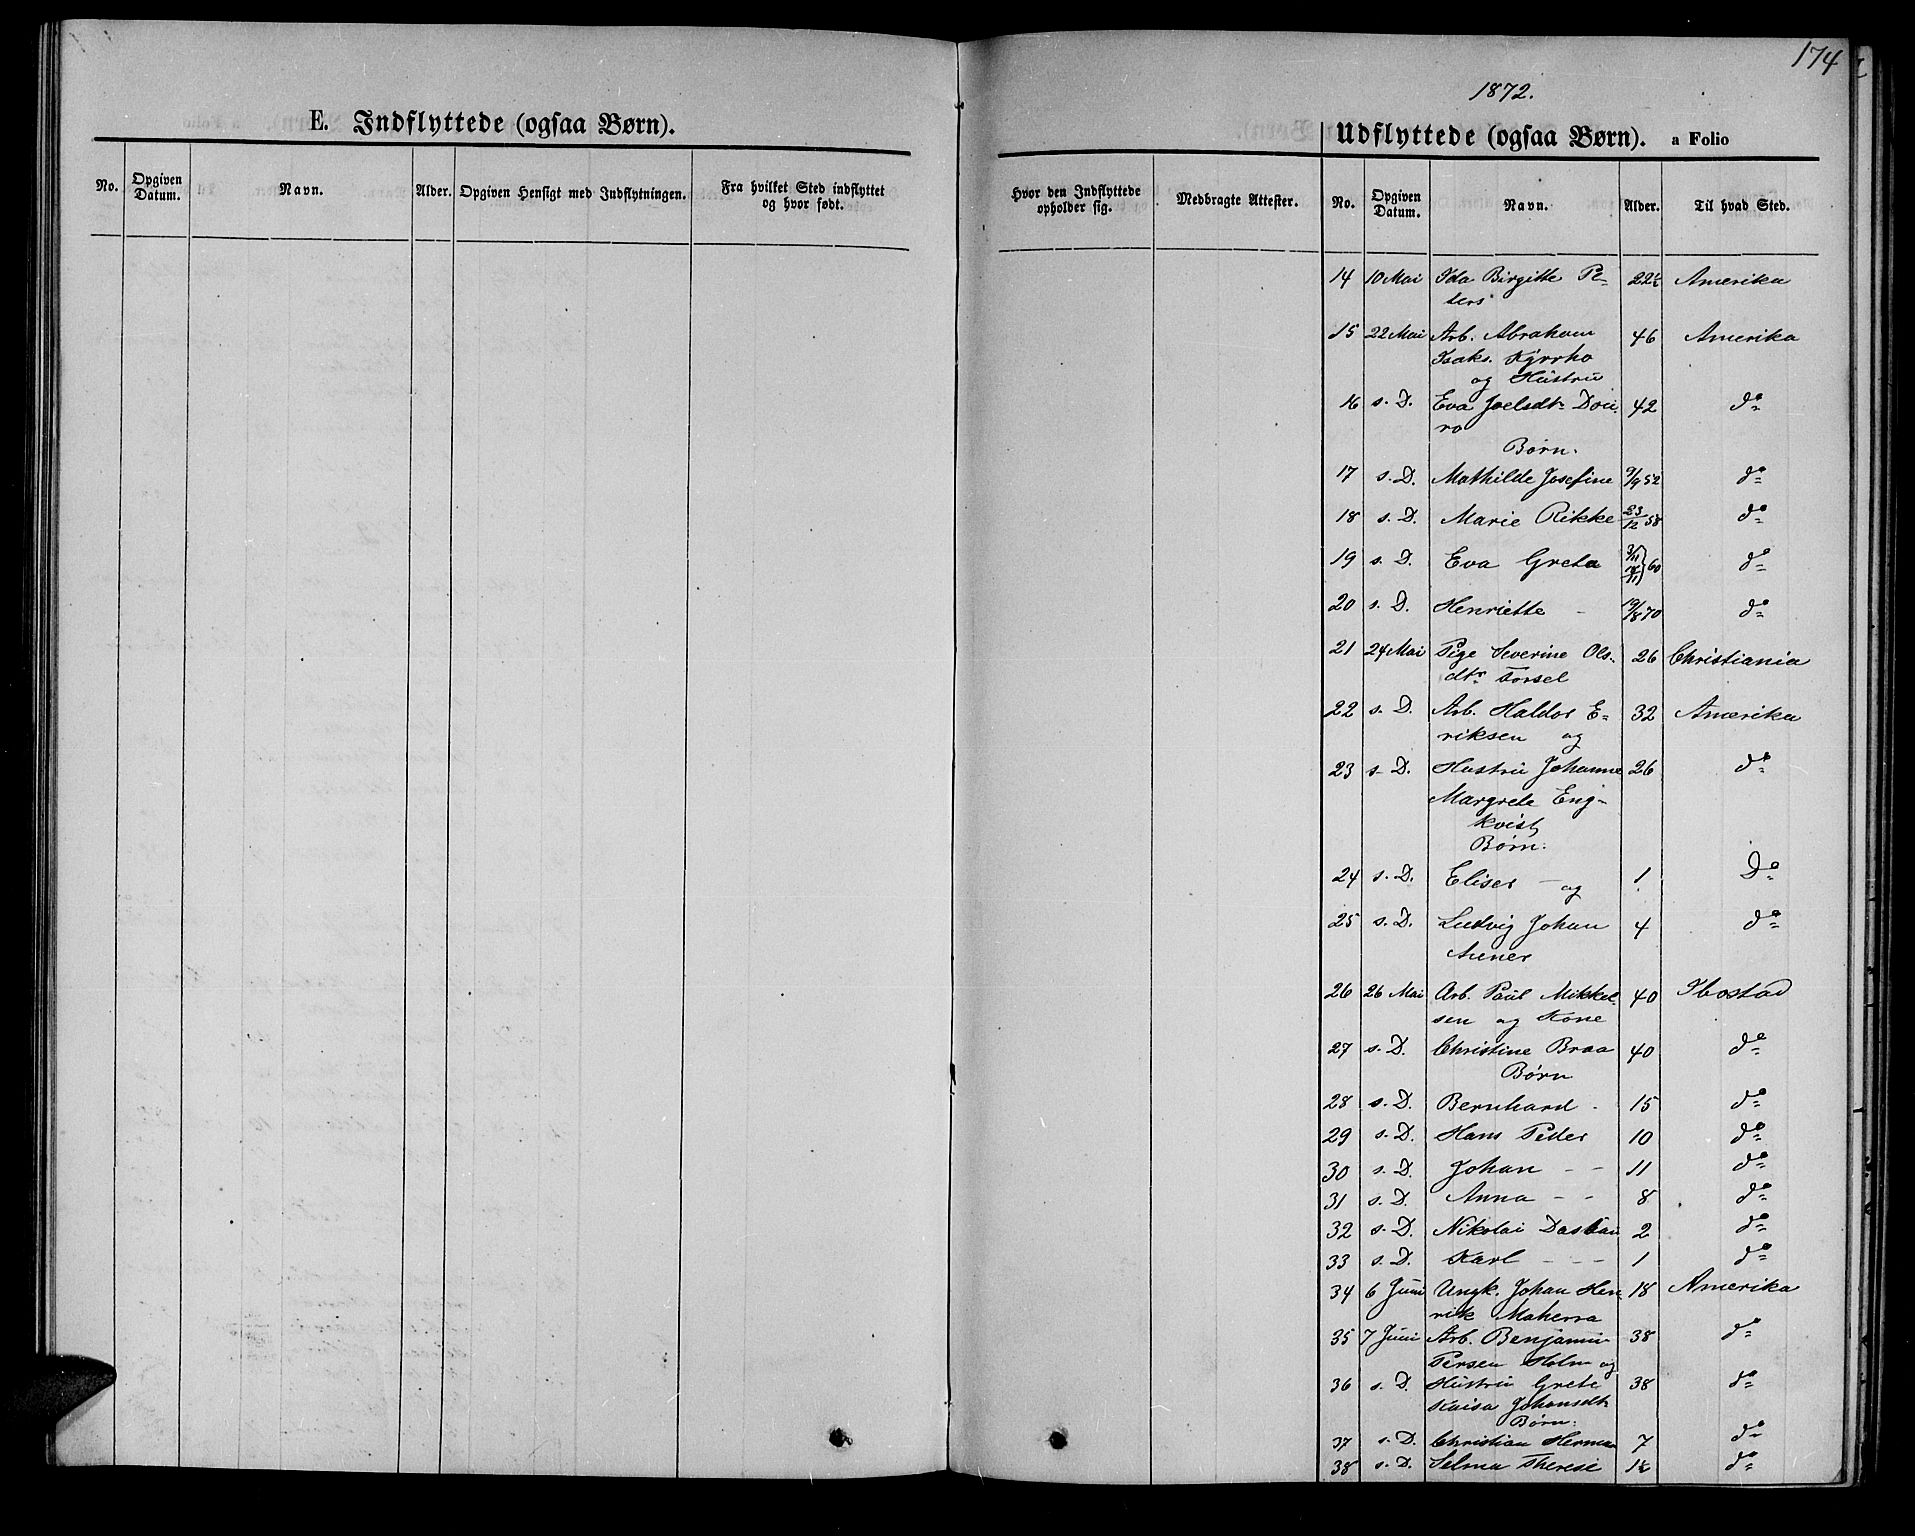 174
1872.
E. Indflyttede (ogsaa Børn).
Udflyttede (ogsaa Børn). a Folio
No. Opgiven Datum. Navn. Alder. Opgiven Hensigt med Indflytningen. Fra hvilket Sted indflyttet og hvor født.
Hvor den Indflyttede opholder sig. Medbragte Attester. No. Opgiven Datum. Navn. Alder. Til hvad Sted.
14 10 Mai Ida Birgitte Pe- 22½ Amerika
ters
15 22 Mai Arb. Abraham 46 Amerika
Isaks. Kyrrho
og Hustru
16 s. D. Eva Joelsdtr Dou- 42 do
ro
Børn.
17 s. D. Mathilde Josefine 9/9 52 do
18 s. D. Marie Rikke 23/12 58 do
19 s. D. Eva Greta 60 do
20 s. D. Henriette - 19/8 70 do
21 24 Mai Pige Severine Ols- 26 Christiania
dtr Torsel
22 s. D. Arb. Haldor E- 32 Amerika
riksen og
23 s. D. Hustru Johanne 26 do
Margrete Eng-
kvist
Børn:
24 s. D. Eliser - og 1 Do
25 s. D. Ludvig Johan 4 do
26 26 Mai Arb. Paul Mikkel- 40 Ibestad
sen og Kone
27 s. D. Christine Braa 40 do
Børn
28 s. D. Bernhard - 15 do
29 s. D. Hans Peder 10 do
30 s. D. Johan - - 11 do
31 s. D. Anna - - 8 do
32 s. D. Nikolai 2 do
33 s. D. Karl - - - 1 do
34 6 Juni Ungk. Johan Hen- 18 Amerika
rik Maherra
35 7 Juni Arb. Benjamin 38 do
Persen Holm og
36 s. D. Hustru Grete 38 do
Kaisa Johansdtr
Børn:
37 s. D. Christian Herman 7 do
38 s. D. Selma Therese 1½ do